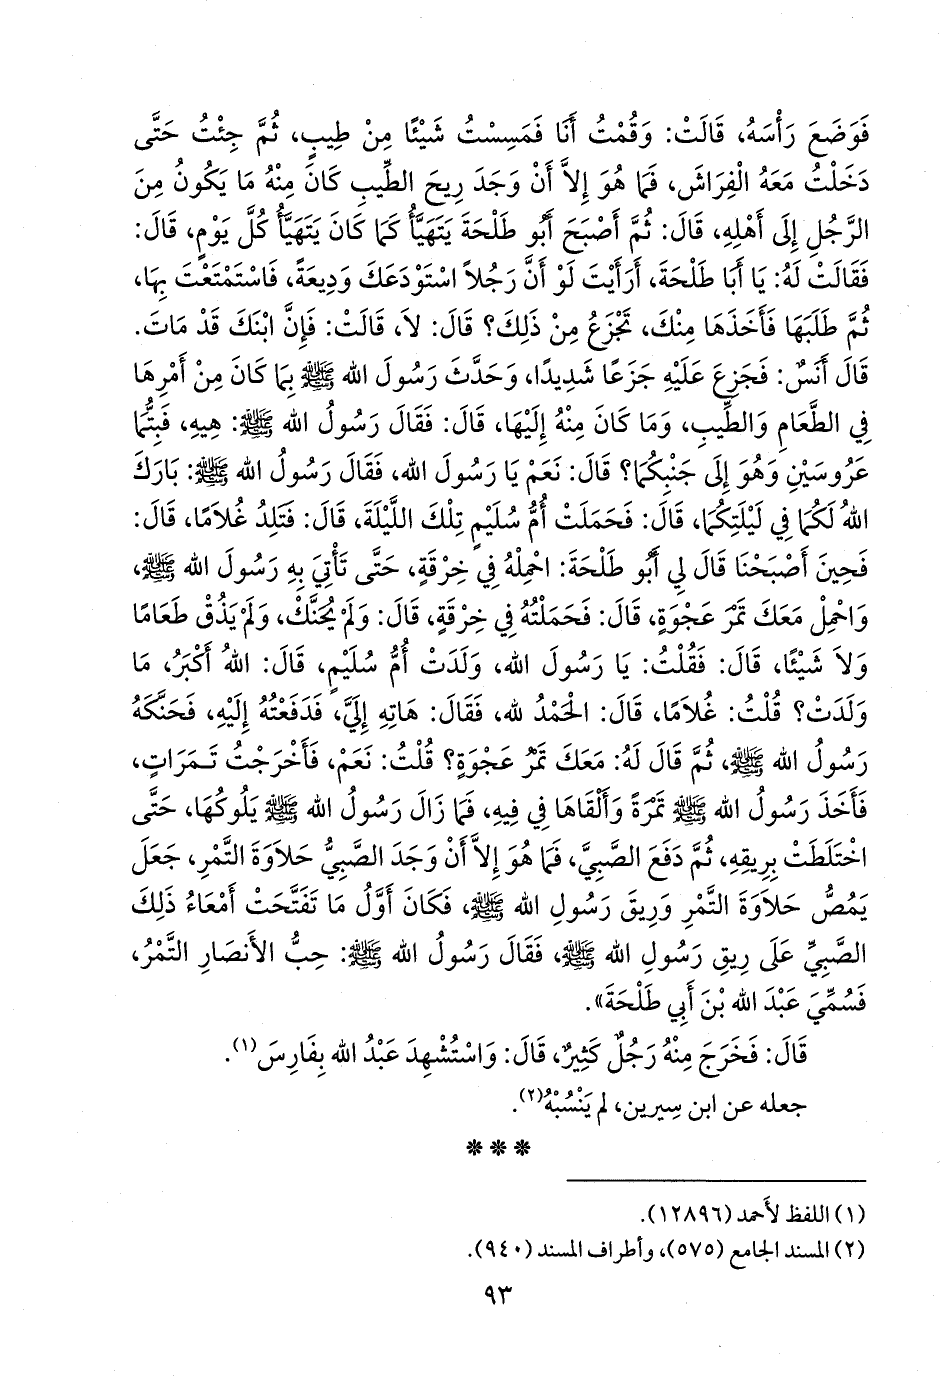 فَوَضَعَ رَأْسَهُ، قَالَتْ: وَقُمْتُ أَنَا فَمَسِسْتُ شَيْئًا مِنْ طِيبٍ، ثُمَّ جِئْتُ حَتَّى
دَخَلْتُ مَعَهُ الْفِرَاشَ، فَمَا هُوَ إِلاَّ أَنْ وَجَدَ رِيحَ الطِّيبِ كَانَ مِنْهُ مَا يَكُونُ مِنَ
الرَّجُلِ إِلَى أَهْلِهِ، قَالَ: ثُمَّ أَصْبَحَ أَبُو طَلْحَةَ يَتَهَيَّأُ كَمَا كَانَ يَتَهَيَّأُ كُلَّ يَوْمٍ، قَالَ:
فَقَالَتْ لَهُ: يَا أَبَا طَلْحَةَ، أَرَأَيْتَ لَوْ أَنَّ رَجُلاً اسْتَوْدَعَكَ وَدِيعَةً، فَاسْتَمْتَعْتَ بِهَا،
ثُمَّ طَلَبَهَا فَأَخَذَهَا مِنْكَ، تَجْزَعُ مِنْ ذَلِكَ؟ قَالَ: لاَ، قَالَتْ: فَإِنَّ ابْنَكَ قَدْ مَاتَ.
قَالَ أَنَسٌ: فَجَزِعَ عَلَيْهِ جَزَعًا شَدِيدًا، وَحَدَّثَ رَسُولَ الله ﷺ بِمَا كَانَ مِنْ أَمْرِهَا
فِي الطَّعَامِ وَالطِّيبِ، وَمَا كَانَ مِنْهُ إِلَيْهَا، قَالَ: فَقَالَ رَسُولُ الله ﷺ: هِيهِ، فَبِتُّمَا
عَرُوسَيْنِ وَهُوَ إِلَى جَنْبِكُمَا؟ قَالَ: نَعَمْ يَا رَسُولَ الله، فَقَالَ رَسُولُ الله ﷺ: بَارَكَ
اللهُ لَكُمَا فِي لَيْلَتِكُمَا، قَالَ: فَحَمَلَتْ أُمُّ سُلَيْمٍ تِلْكَ اللَّيْلَةَ، قَالَ: فَتَلِدُ غُلاَمًا، قَالَ:
فَحِينَ أَصْبَحْنَا قَالَ لِي أَبُو طَلْحَةَ: احْمِلْهُ فِي خِرْقَةٍ، حَتَّى تَأْتِيَ بِهِ رَسُولَ الله ﷺ،
وَاحْمِلْ مَعَكَ تَمْرَ عَجْوَةٍ، قَالَ: فَحَمَلْتُهُ فِي خِرْقَةٍ، قَالَ: وَلَمْ يُحَنَّكْ، وَلَمْ يَذُقْ طَعَامًا
وَلاَ شَيْئًا، قَالَ: فَقُلْتُ: يَا رَسُولَ الله، وَلَدَتْ أُمُّ سُلَيْمٍ، قَالَ: اللهُ أَكْبَرُ، مَا
وَلَدَتْ؟ قُلْتُ: غُلاَمًا، قَالَ: الْحَمْدُ لله، فَقَالَ: هَاتِهِ إِلَيَّ، فَدَفَعْتُهُ إِلَيْهِ، فَحَنَّكَهُ
رَسُولُ الله ﷺ، ثُمَّ قَالَ لَهُ: مَعَكَ تَمْرُ عَجْوَةٍ؟ قُلْتُ: نَعَمْ، فَأَخْرَجْتُ تَمَرَاتٍ،
فَأَخَذَ رَسُولُ الله ﷺ تَمْرَةً وَأَلْقَاهَا فِي فِيهِ، فَمَا زَالَ رَسُولُ الله ﷺ يَلُوكُهَا، حَتَّى
اخْتَلَطَتْ بِرِيقِهِ، ثُمَّ دَفَعَ الصَّبِيَّ، فَمَا هُوَ إِلاَّ أَنْ وَجَدَ الصَّبِيُّ حَلاَوَةَ التَّمْرِ، جَعَلَ
يَمُصُّ حَلاَوَةَ التَّمْرِ وَرِيقَ رَسُولِ الله ﷺ، فَكَانَ أَوَّلُ مَا تَفَتَّحَتْ أَمْعَاءُ ذَلِكَ
الصَّبِيِّ عَلَى رِيقِ رَسُولِ الله ﷺ، فَقَالَ رَسُولُ الله ﷺ: حِبُّ الأَنصَارِ التَّمْرُ،
فَسُمِّيَ عَبْدَ الله بْنَ أَبِي طَلْحَةَ».
قَالَ: فَخَرَجَ مِنْهُ رَجُلٌ كَثِيرٌ، قَالَ: وَاسْتُشْهِدَ عَبْدُ الله بِفَارِسَ(١).
جعله عن ابن سِيرين، لم يَنْسُبْهُ(٢).
***
(١) اللفظ لأَحمد (١٢٨٩٦).
(٢) المسند الجامع (٥٧٥)، وأطراف المسند (٩٤٠).
٩٣